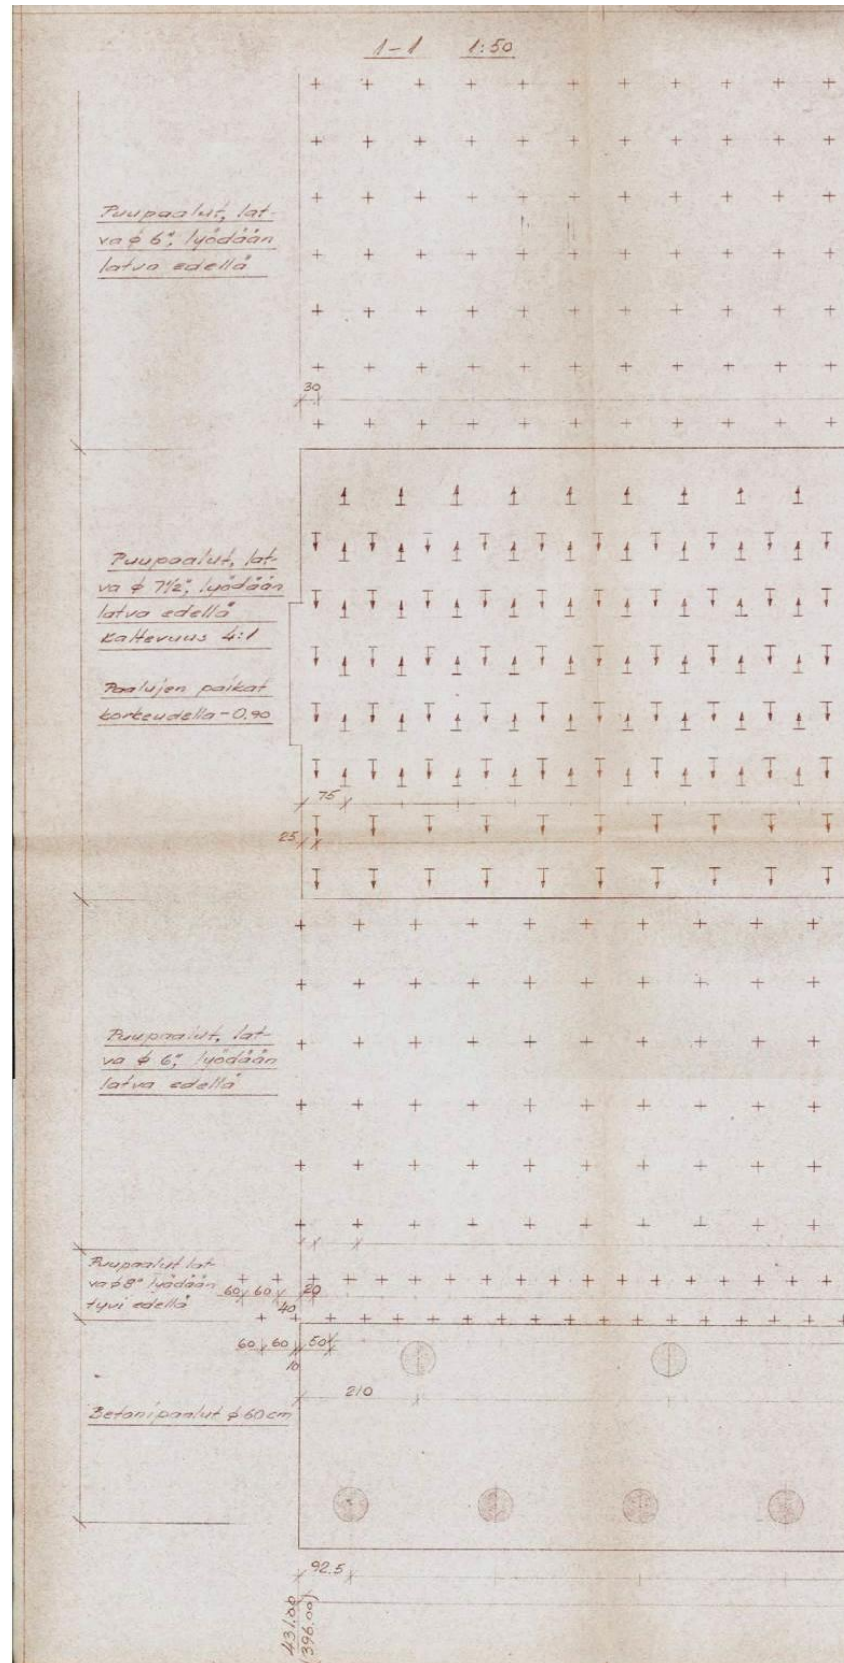 1-1 1:50
Puupaalut, lat-
va ø 6", lyödään
latva edellä
30
Puupaalut, lat-
va ø 7½", lyödään
latva edellä
Kaltevuus 4:1
Paalujen paikat
korkeudella -0.90
75
25
Puupaalut, lat-
va ø 6", lyödään
latva edellä
Puupaalut lat-
va ø 8" lyödään
tyvi edellä
60 60 20
40
60 60 50
10
210
Betonipaalut ø 60 cm
92.5
431.00
(396.00)